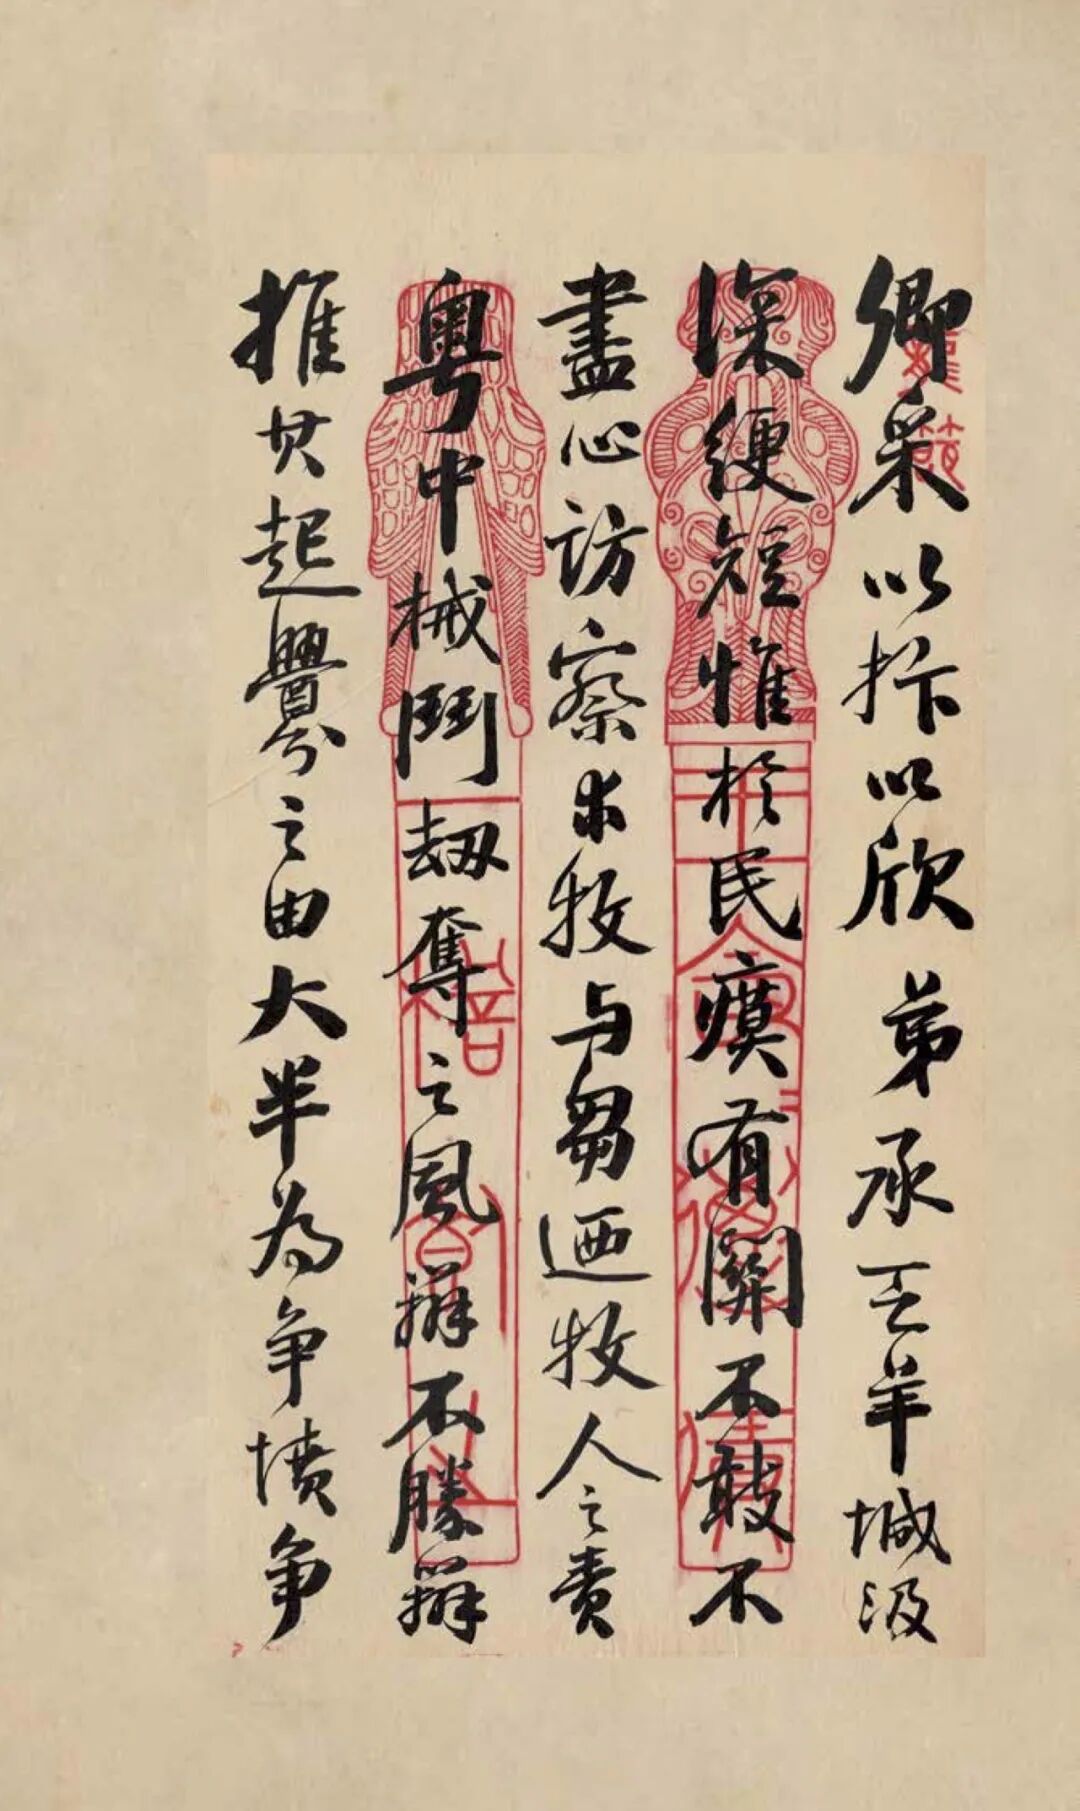 卿采以抃以欣弟承乏羊城汲
深綆短惟於民瘼有關不敢不
盡心訪察求牧与芻迺牧人之責
粵中械鬥刼奪之風辦不勝辦
推其起釁之由大半為爭墳爭